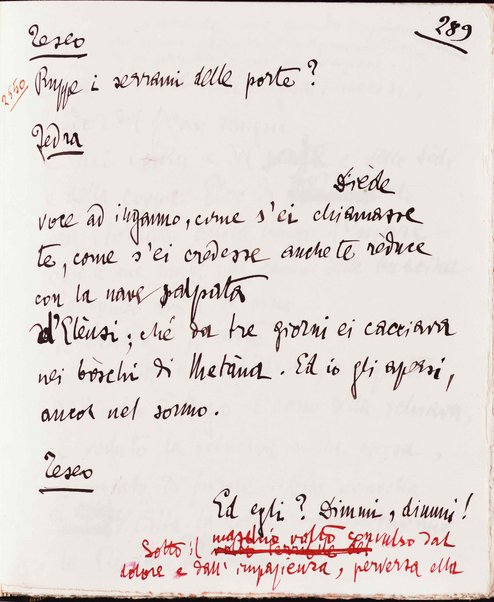 289
Teseo
2550
Ruppe i serrami delle porte?
Fedra
Diède
voce ad inganno, come s'ei chiamasse
te, come s'ei credesse anche te rèduce
con la nave salpata
d'Elèusi; ché da tre giorni ei cacciava
nei bòschi di Metàna. Ed io gli apersi,
ancor nel sonno.
Teseo
Ed egli? Dimmi, dimmi!
Sotto il maschio volto convulso dal
dolore e dall'impazienza, perversa ella